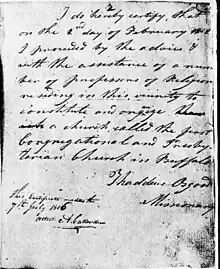 I do hereby certify, that
on the 2nd day of February 1812
I proceeded by the advice &
with the assistance of a num
ber of professors of Religion
residing in this vicinity to
constitute and organize
a church called the first
congregational and Presby
terian Church in Buffalo
Thaddeus Osgood
Missionary
This
7th July 1816
attest A. Callender